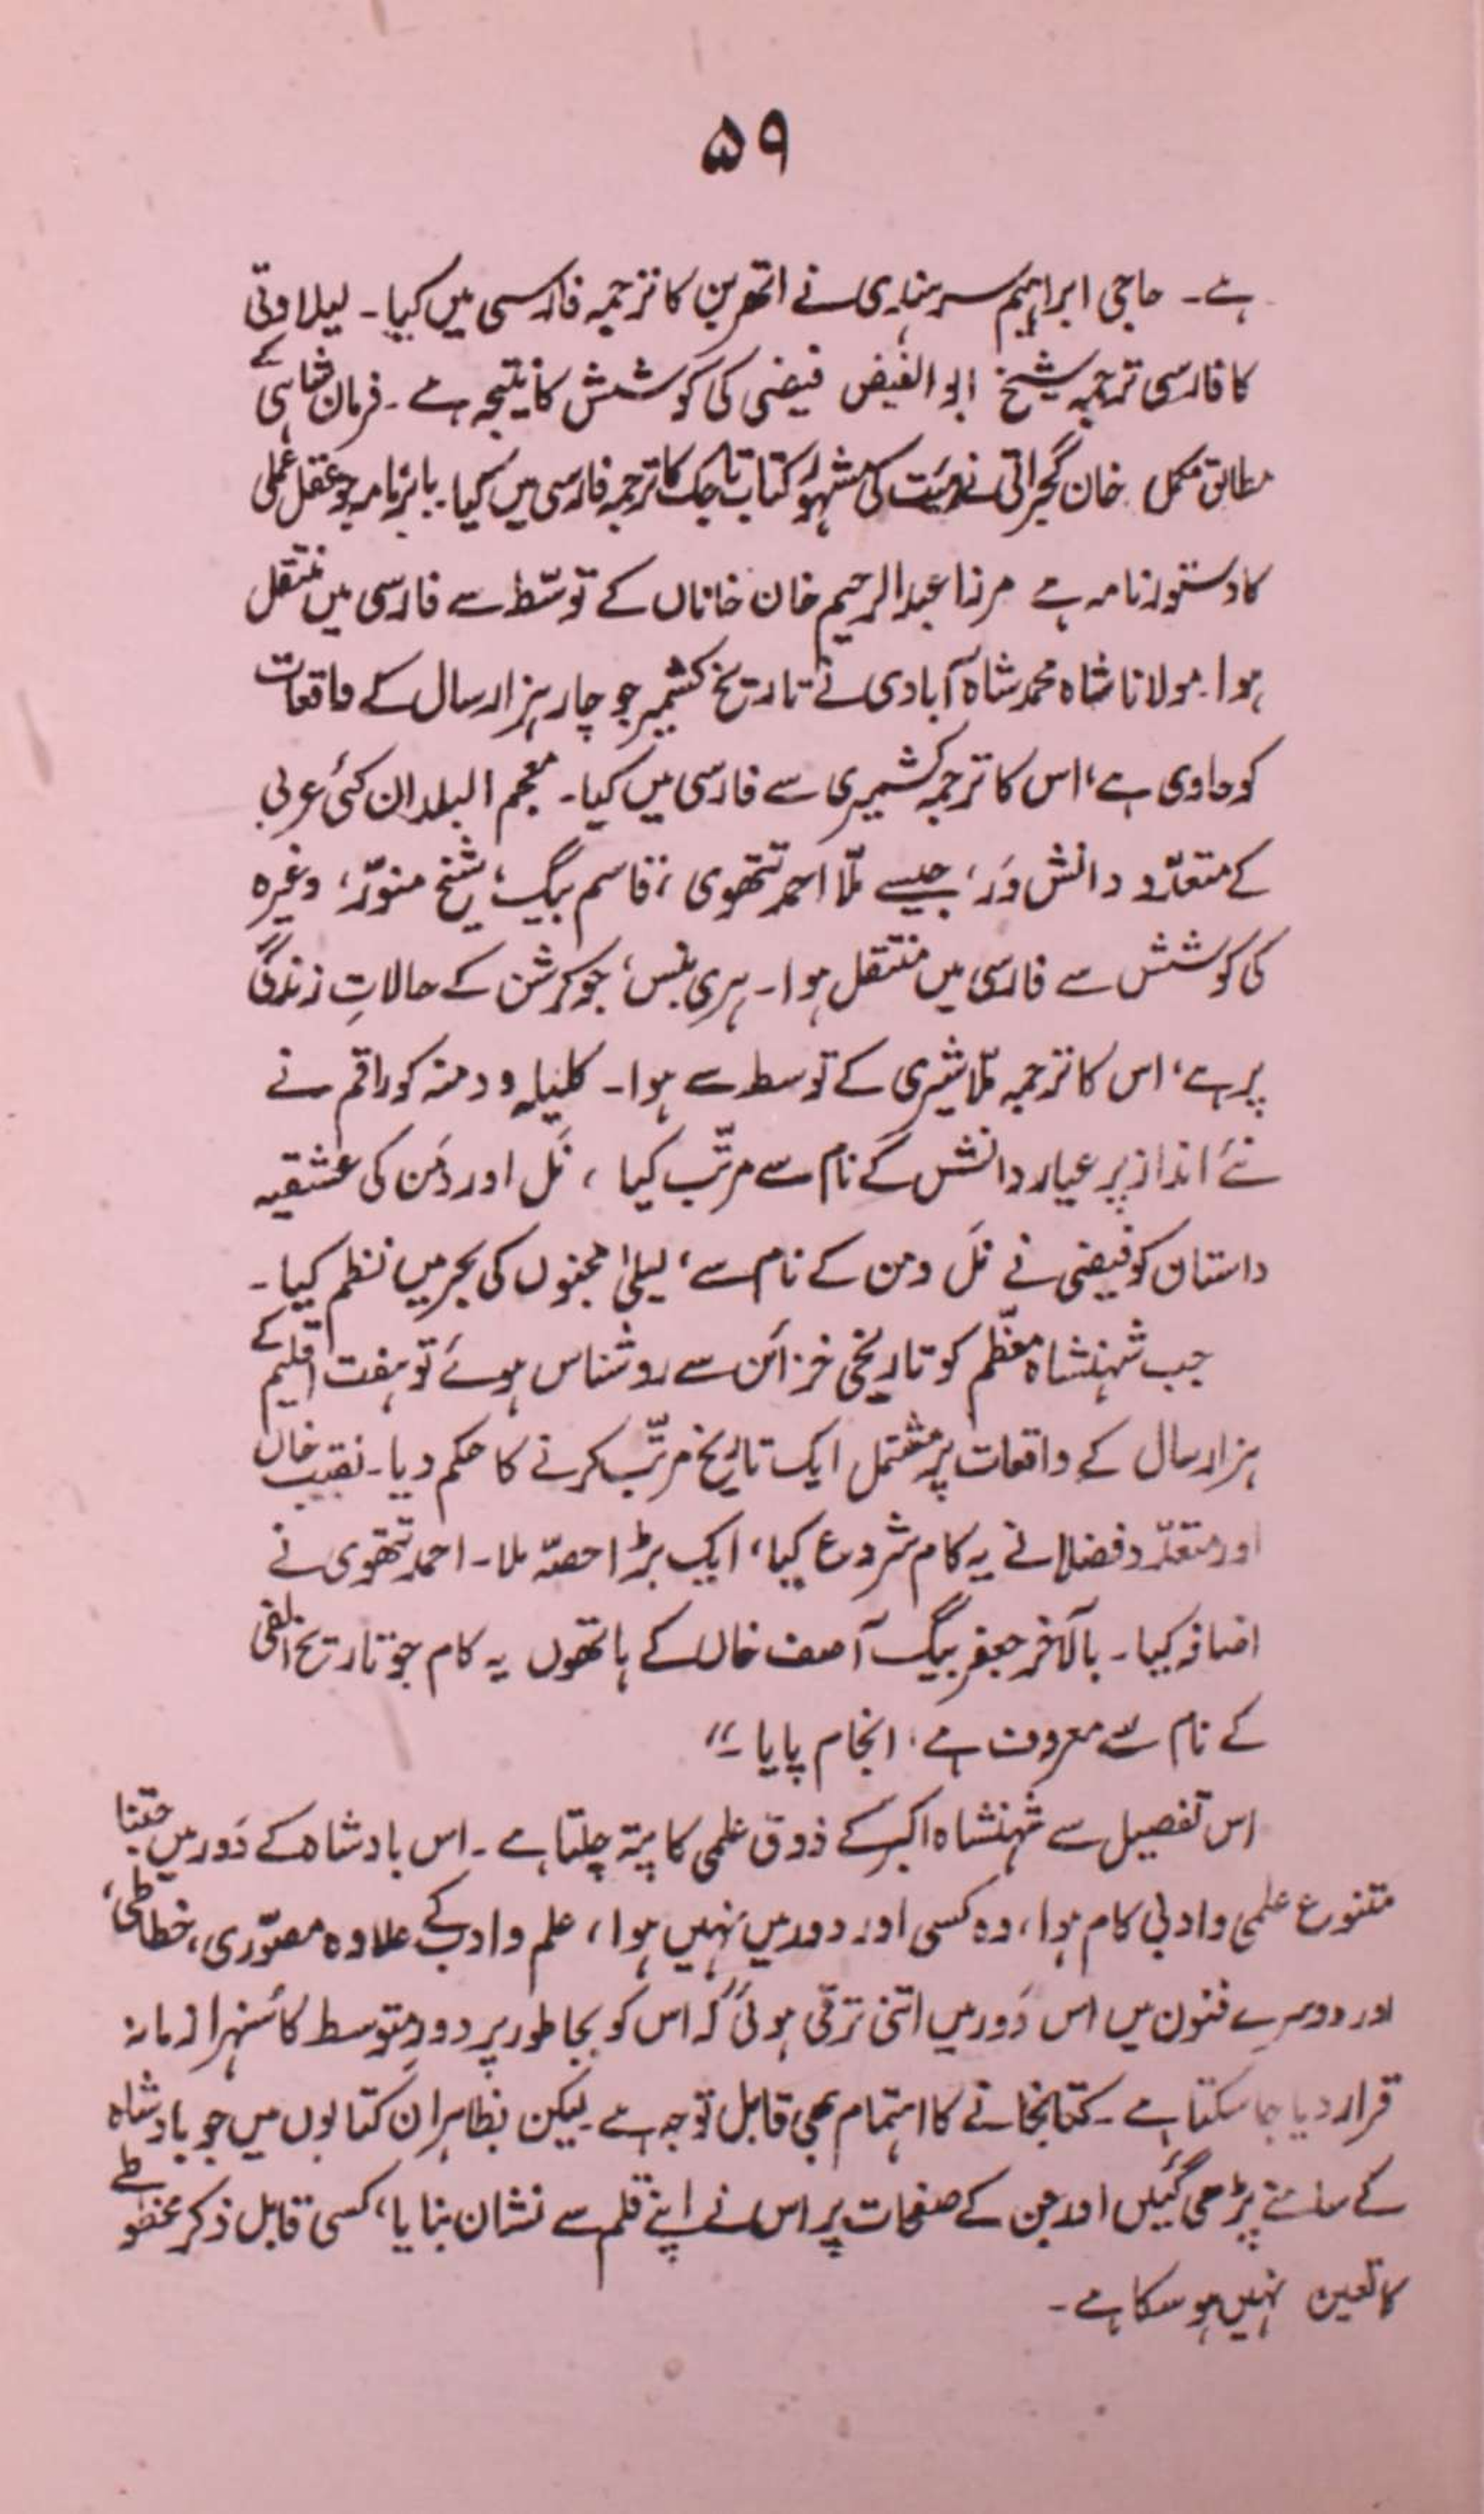 ۵۹
ہے۔ حاجی ابراہیم سرہندی نے اتھربن کا ترجمہ فارسی میں کیا۔ لیلاوتی
کا فارسی ترجمہ شیخ ابو الفیض فیضی کی کوشش کا نتیجہ ہے۔ فرمان شاہی کے
مطابق مکمل خان گجراتی نے ہیئت کی مشہور کتاب تاجک کا ترجمہ فارسی میں کیا۔ بابرنامہ جو عقل عملی
کا دستور نامہ ہے مرزا عبدالرحیم خان خاناں کے توسّط سے فارسی میں منتقل
ہوا۔ مولانا شاہ محمد شاہ آبادی نے تاریخ کشمیر جو چار ہزار سال کے واقعات
کو حاوی ہے، اس کا ترجمہ کشمیری سے فارسی میں کیا۔ معجم البلدان کئی عربی
کے متعدّد دانش وَر، جیسے ملّا احمد تتھوی، قاسم بیگ، شیخ منوّر، وغیرہ
کی کوشش سے فارسی میں منتقل ہوا۔ ہری بنس، جو کرشن کے حالاتِ زندگی
پر ہے، اس کا ترجمہ ملّا شیری کے توسط سے ہوا۔ کلیلہ و دمنہ کو راقم نے
نئے انداز پر عیار دانش کے نام سے مرتّب کیا، نَل اور دَمن کی عشقیہ
داستان کو فیضی نے نَل دمن کے نام سے، لیلیٰ مجنوں کی بحر میں نظم کیا۔
جب شہنشاہ معظّم کو تاریخی خزائن سے روشناس ہوئے تو ہفت اقلیم کے
ہزار سال کے واقعات پر مشتمل ایک تاریخ مرتّب کرنے کا حکم دیا۔ نقیب خاں
اور متعدّد فضلا نے یہ کام شروع کیا، ایک بڑا حصّہ ملا۔ احمد تتھوی نے
اضافہ کیا۔ بالآخر جعفر بیگ آصف خاں کے ہاتھوں یہ کام جو تاریخ الفی
کے نام سے معروف ہے، انجام پایا۔"
اس تفصیل سے شہنشاہ اکبر کے ذوق علمی کا پتہ چلتا ہے۔ اس بادشاہ کے دَور میں جتنا
متنوع علمی و ادبی کام ہوا، وہ کسی اور دور میں نہیں ہوا، علم و ادب کے علاوہ مصوّری، خطاطی،
اور دوسرے فنون میں اس دَور میں اتنی ترقی ہوئی کہ اس کو بجا طور پر دورِ متوسط کا سُنہرا زمانہ
قرار دیا جا سکتا ہے۔ کتابخانے کا اہتمام بھی قابل توجہ ہے۔ لیکن بظاہر ان کتابوں میں جو بادشاہ
کے سامنے پڑھی گئیں اور جن کے صفحات پر اس نے اپنے قلم سے نشان بنایا، کسی قابل ذکر مخطوطے
کا تعین نہیں ہو سکا ہے۔